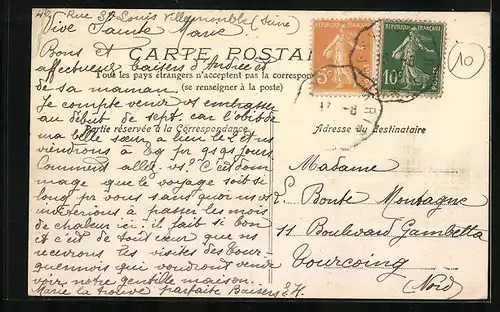 49 Rue St Louis Villemomble (Seine)
Vive Sainte Marie
Bons et
affectueux baisers d'Andrée et
de sa maman.
CARTE POSTALE
Tout les pays étrangers n'acceptent pas la correspon
(se renseigner à la poste)
Partie réservée à la Correspondance
Adresse du destinataire
Je compte venir vs embrasser
au début de sept. car
ma belle sœur a lieu le 2 et ns
viendrons à pr qqs jours
Comment allez vs? C'est dom
mage que le voyage soit si
long pr vous sans quoi ns vs
inviterions à passer les mois
de chaleur ici. il fait si bon
et c'est de tout cœur que ns
recevrons les visites des Tour-
quennois qui voudront vendre
voir notre gentille maison.
Marie la trouve parfaite Baisers
Madame
Bonte Montagne
11 Boulevard Gambetta
Tourcoing
(Nord)
5c
10c
10